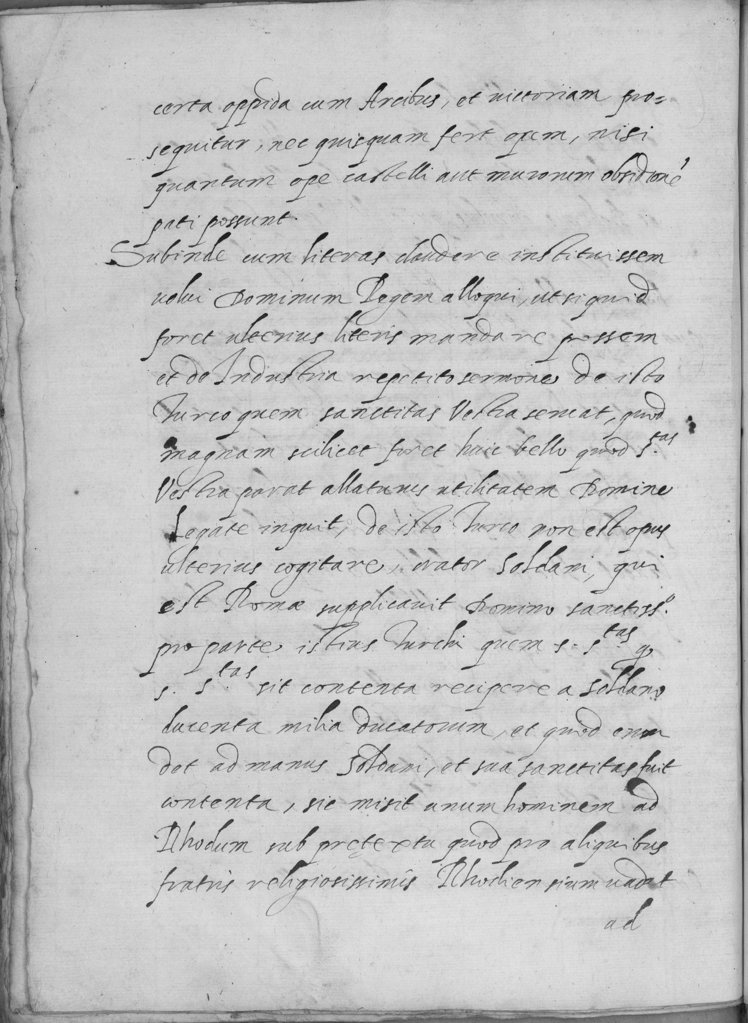 certa oppida cum Arcibus, et uictoriam pro=
sequitur, nec quisquam fert opem, nisi
quantum ope castelli aut murorum obsidionē
pati possunt.
Subinde cum literas claudere instituissem
uolui Dominum Regem alloqui, ut si quid
foret ulterius literis mandare possem
et de Industria repetito sermone de isto
Turco quem sanctitas Vestra seruat, quod
magnam scilicet foret huic bello quod S.tas
Vestra parat allaturus utilitatem Domine
Legate inquit, de isto Turco non est opus
ulterius cogitare, orator Soldani, qui
est Romæ supplicauit Domino sanctiss.o
pro parte istius Turchi quem s. S.tas q
s. S.tas sit contenta recipere a Soldano
ducenta milia ducatorum, et quod eum
det ad manus Soldani, et sua sanctitas fuit
contenta, sic misit unum hominem ad
Rhodum sub prętextu quod pro aliquibus
fratris religiosissimis Rhodiensium uadat
ad